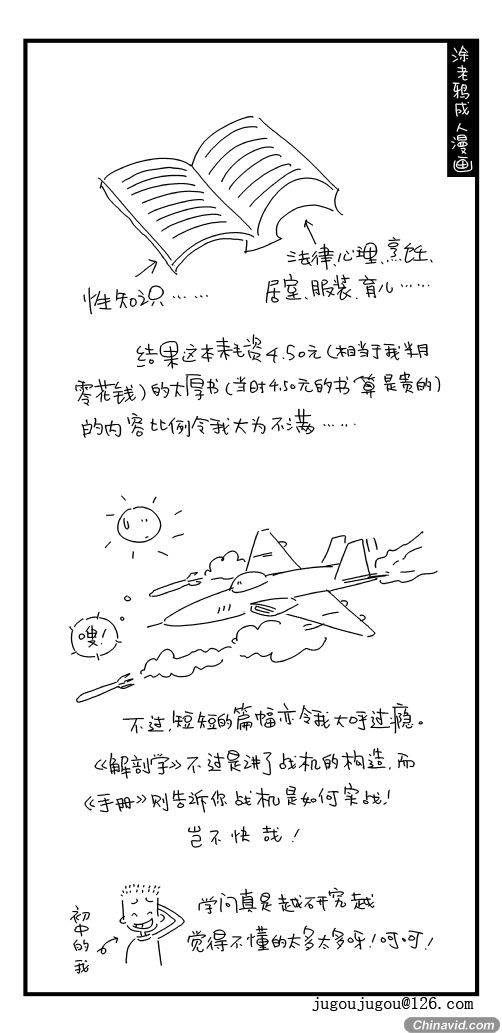 涂老鸦成人漫画
法律、心理、烹饪、
居室、服装、育儿……
性知识……
结果这本耗资4.50元(相当于我半月
零花钱)的大厚书(当时4.50元的书算是贵的)
的内容比例令我大为不满……
嗖!
不过,短短的篇幅亦令我大呼过瘾。
《解剖学》不过是讲了战机的构造,而
《手册》则告诉你战机是如何实战!
岂不快哉!
初中的我
学问真是越研究越
觉得不懂的太多太多呀!呵呵!
jugoujugou@126.com
Chinavid.com